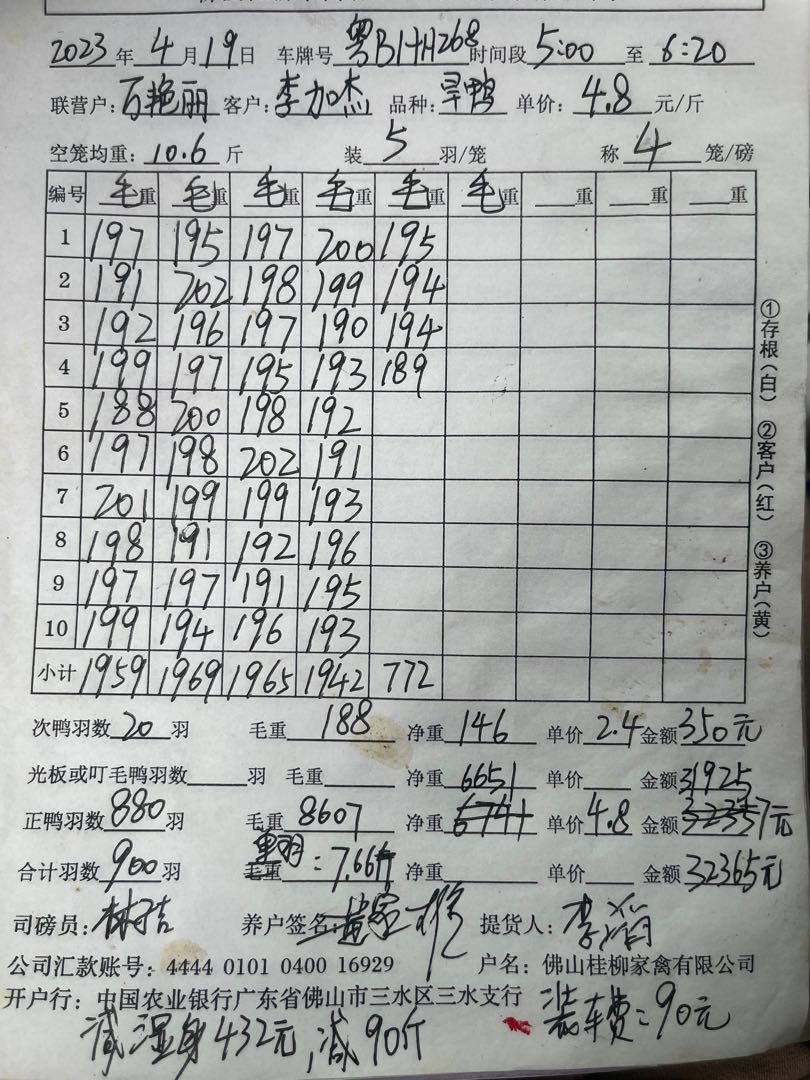 2023 年 4 月 19 日 车牌号 粤B1HH268 时间段 5:00 至 6:20
联营户: 万艳丽 客户: 李加杰 品种: 旱鸭 单价: 4.8 元/斤
空笼均重: 10.6 斤 装 5 羽/笼 称 4 笼/磅
编号 毛重 毛重 毛重 毛重 毛重 毛重 重 重 重
1 197 195 197 200 195
2 191 202 198 199 194
3 192 196 197 190 194
4 199 197 195 193 189
5 188 200 198 192
6 197 198 202 191
7 201 199 199 193
8 198 191 192 196
9 197 197 191 195
10 199 194 196 193
小计 1959 1969 1965 1942 772
次鸭羽数 20 羽 毛重 188 净重 146 单价 2.4 金额 350元
光板或叮毛鸭羽数 羽 毛重 净重 6651 单价 金额 31925
正鸭羽数 880 羽 毛重 8607 净重 6741 单价 4.8 金额 32357元
合计羽数 900 羽 毛重 单羽: 7.66斤 净重 单价 金额 32365元
司磅员: 养户签名: 提货人: 李滔
公司汇款账号: 4444 0101 0400 16929 户名: 佛山桂柳家禽有限公司
开户行: 中国农业银行广东省佛山市三水区三水支行
减湿身432元,减90斤 装车费=90元
①存根(白) ②客户(红) ③养户(黄)